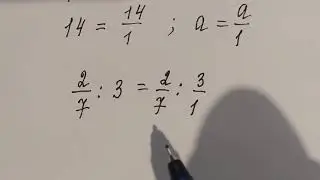 14 = 14/1 ; a = a/1
2/7 : 3 = 2/7 : 3/1